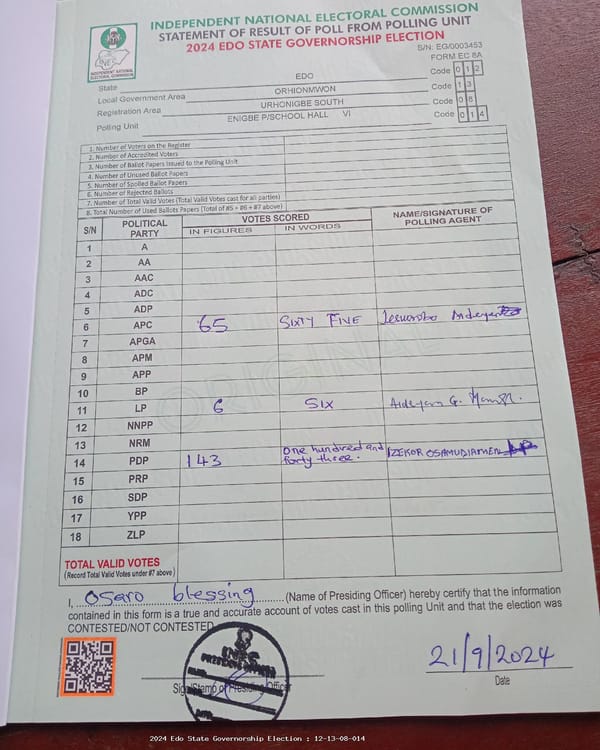 INDEPENDENT NATIONAL ELECTORAL COMMISSION
STATEMENT OF RESULT OF POLL FROM POLLING UNIT
2024 EDO STATE GOVERNORSHIP ELECTION
INEC
INDEPENDENT NATIONAL ELECTORAL COMMISSION
S/N: EG/0003453
FORM EC 8A
State EDO Code 0 1 2
Local Government Area ORHIONMWON Code 1 3
Registration Area URHONIGBE SOUTH Code 0 8
Polling Unit ENIGBE P/SCHOOL HALL VI Code 0 1 4
1. Number of Voters on the Register
2. Number of Accredited Voters
3. Number of Ballot Papers Issued to the Polling Unit
4. Number of Unused Ballot Papers
5. Number of Spoiled Ballot Papers
6. Number of Rejected Ballots
7. Number of Total Valid Votes (Total Valid Votes cast for all parties)
8. Total Number of Used Ballots Papers (Total of #5 + #6 + #7 above)
S/N POLITICAL PARTY VOTES SCORED NAME/SIGNATURE OF POLLING AGENT
IN FIGURES IN WORDS
1 A
2 AA
3 AAC
4 ADC
5 ADP
6 APC 65 SIXTY FIVE
7 APGA
8 APM
9 APP
10 BP
11 LP 6 SIX
12 NNPP
13 NRM
14 PDP 143 One hundred and forty three. IZEKOR OSAMUDIAMEN
15 PRP
16 SDP
17 YPP
18 ZLP
TOTAL VALID VOTES
(Record Total Valid Votes under #7 above)
ORIGINAL
I, Osaro blessing (Name of Presiding Officer) hereby certify that the information
contained in this form is a true and accurate account of votes cast in this polling Unit and that the election was
CONTESTED/NOT CONTESTED
INEC
PRESIDING OFFICER
Sign/Stamp of Presiding Officer
21/9/2024
Date
2024 Edo State Governorship Election : 12-13-08-014